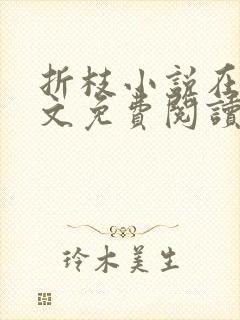 折枝小说在
文免費閱讀
玲木美生